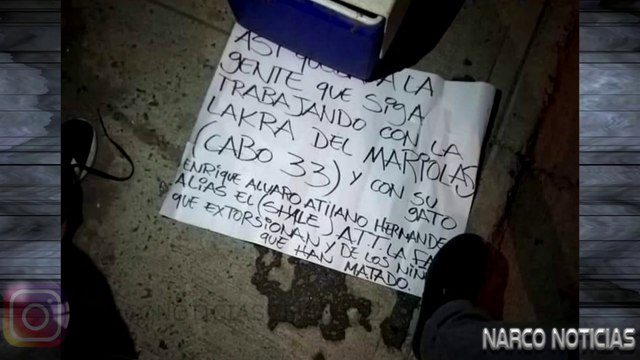 ASI A LA
GENTE QUE SIGA
TRABAJANDO CON LA
LAKRA DEL MARPOLAS
(CABO 33) Y CON SU
GATO
ENRIQUE ALVARO ATIJANO HERNANDE
ALIAS EL (SHYLE) ATT. LA FA
QUE EXTORSIONAN Y DE LOS NIÑ
QUE HAN MATADO.
NOTICIAS
NARCO NOTICIAS